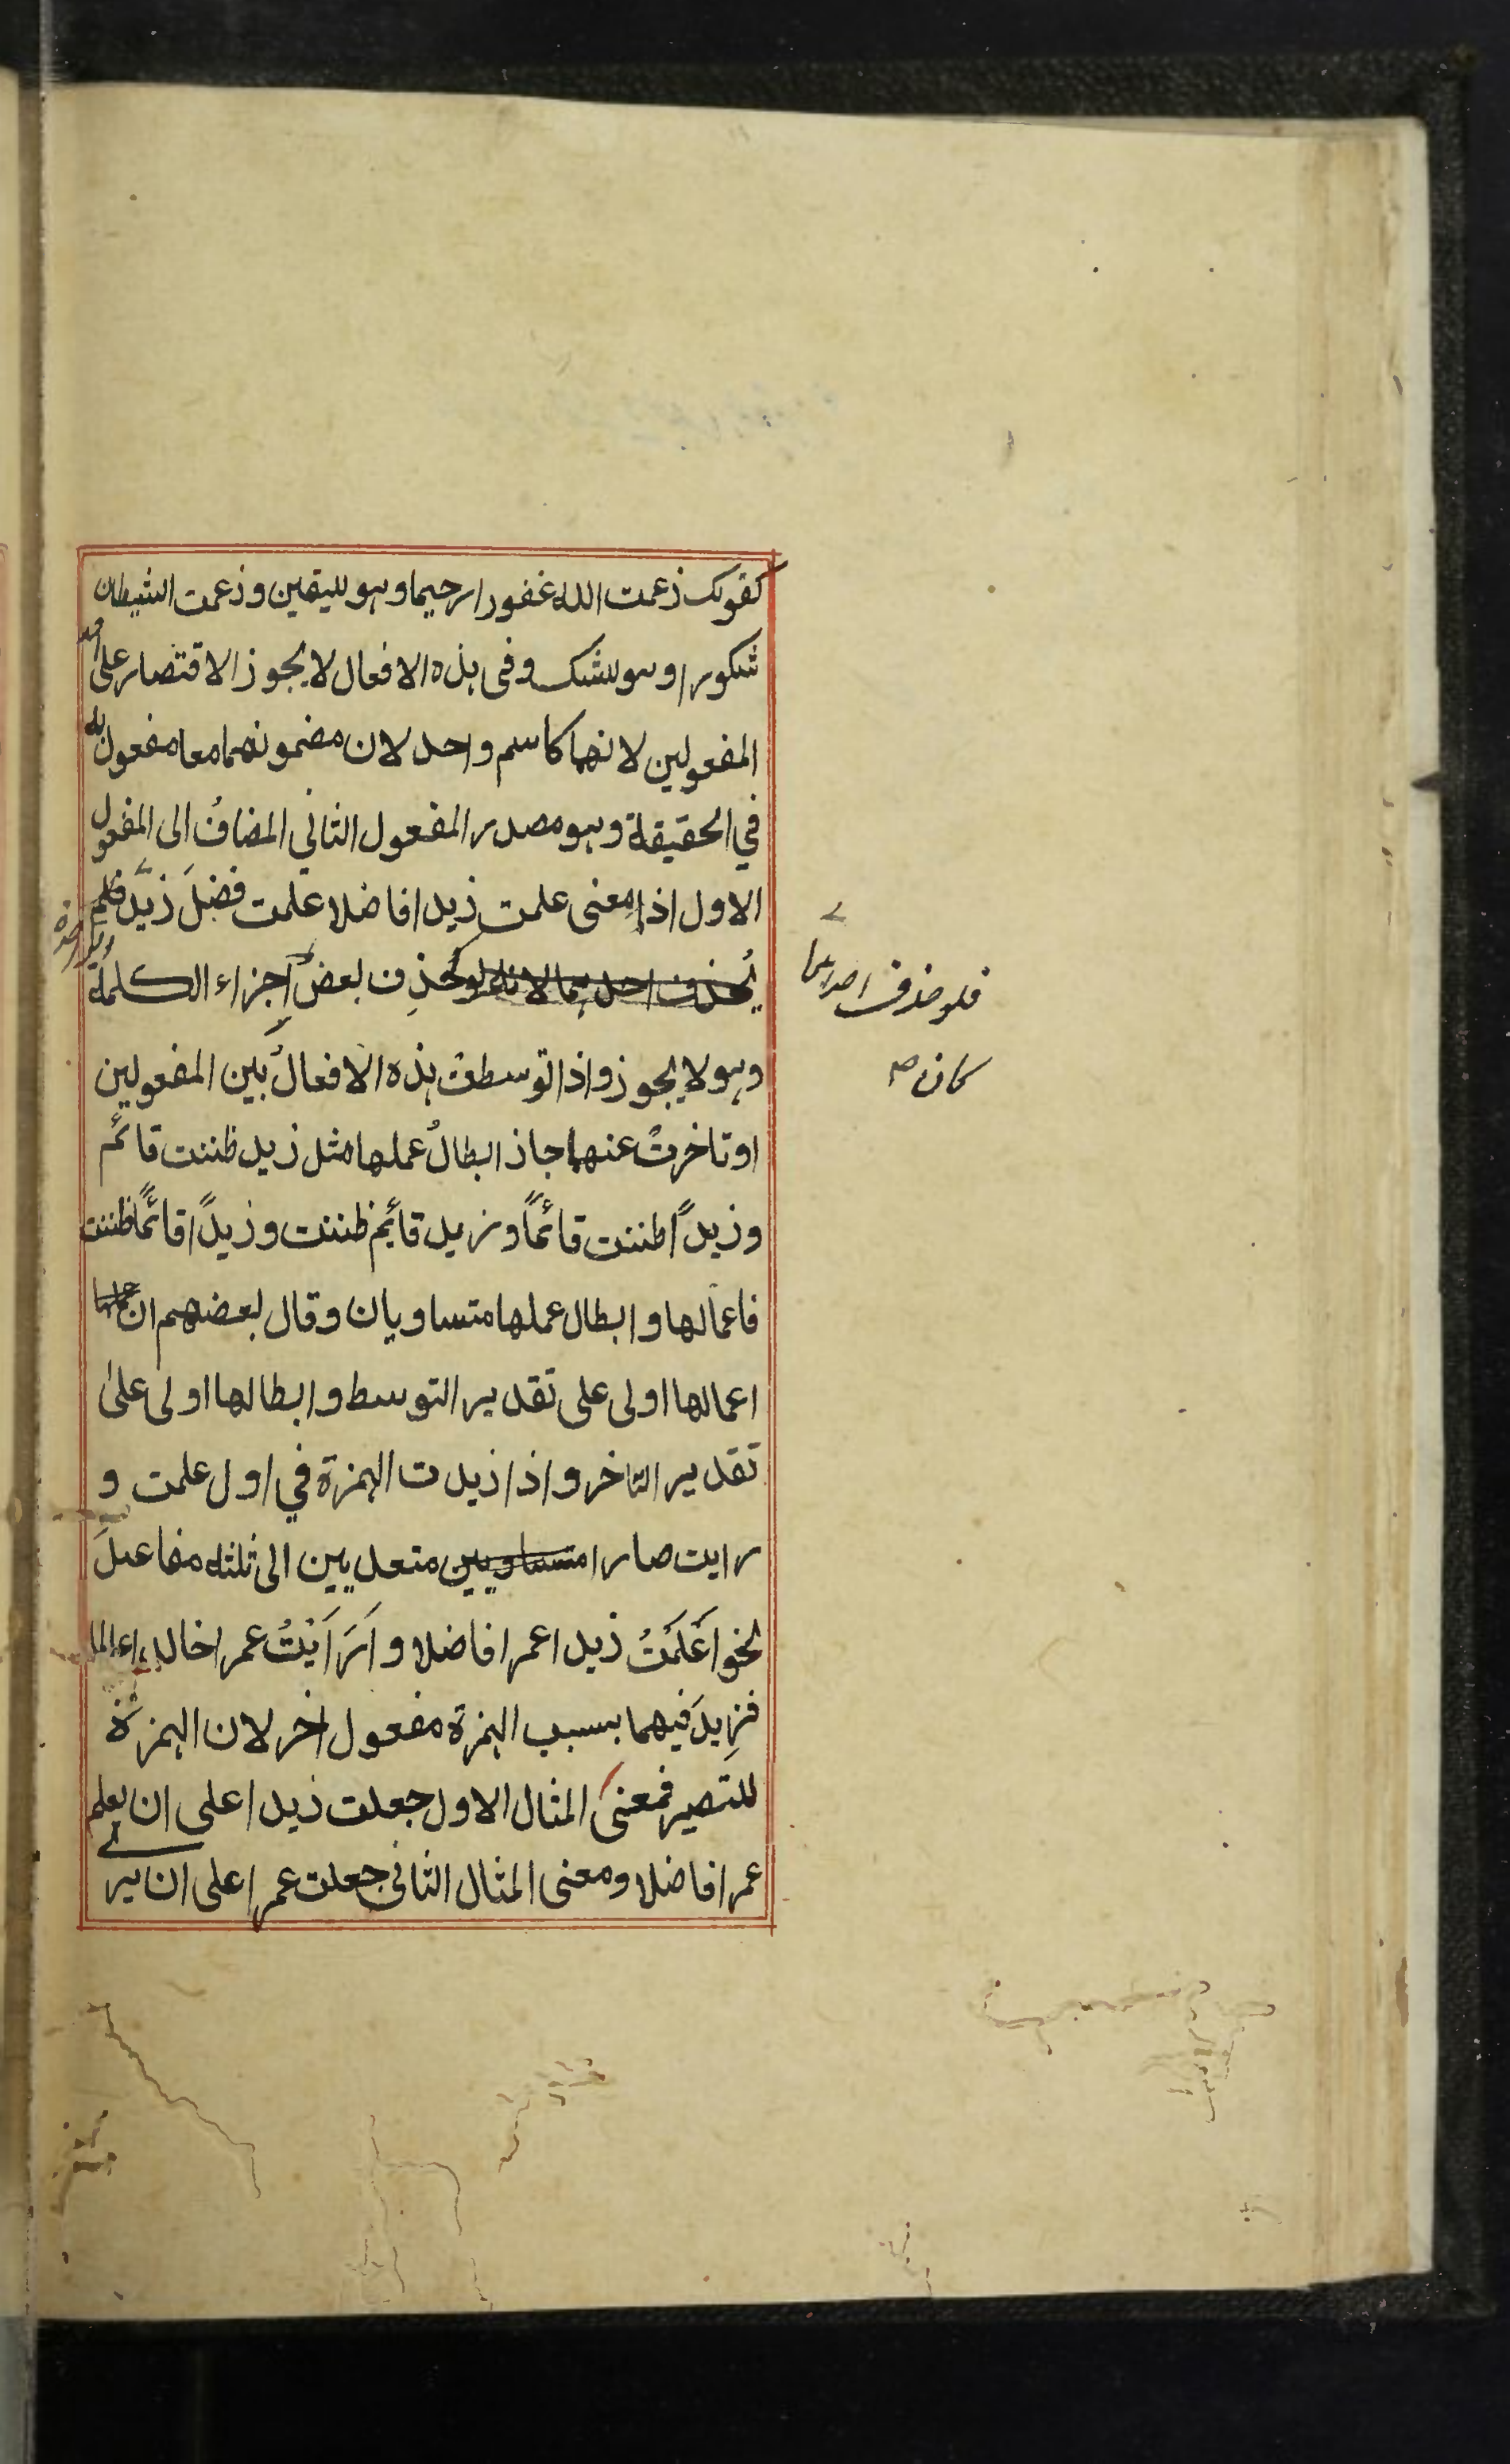 كقولك زعمت الله غفورا رحيما وهو لليقين وزعمت الشيطان
شكورا وهو للشك وفي هذه الافعال لا يجوز الاقتصار على احد
المفعولين لانهما كاسم واحد لان مضمونهما معا مفعول به
في الحقيقة وهو مصدر المفعول الثاني المضافُ الى المفعول
الاول اذ معنى علمت زيدا فاضلا علمت فضلَ زيد فلم
يُحذف احدهما لانه لو حُذِف بعض اجزاء الكلمة
فلو حذف احدهما
كان
وهو لا يجوز واذا توسطت هذه الافعالُ بين المفعولين
او تاخرتْ عنهما جاز ابطالُ عملها مثل زيد ظننت قائم
وزيدًا ظننت قائمًا وزيد قائم ظننت وزيدًا قائمًا ظننت
فاعمالها وابطال عملها متساويان وقال بعضهم ان
اعمالها اولى على تقدير التوسط وابطالها اولى على
تقدير التاخر واذا زيدت الهمزة في اول علمت و
رايت صارا متساويين متعديين الى ثلثه مفاعيلَ
نحو اَعْلَمْتُ زيدا عمرا فاضلا واَرَاَيْتُ عمرا خالدا
فزِيدَ فيهما بسبب الهمزة مفعول اخر لان الهمزة
للتصيير فمعنى المثال الاول جعلت زيدا على ان يعلم
عمرا فاضلا ومعنى المثال الثاني جعلت عمرا على ان يرى